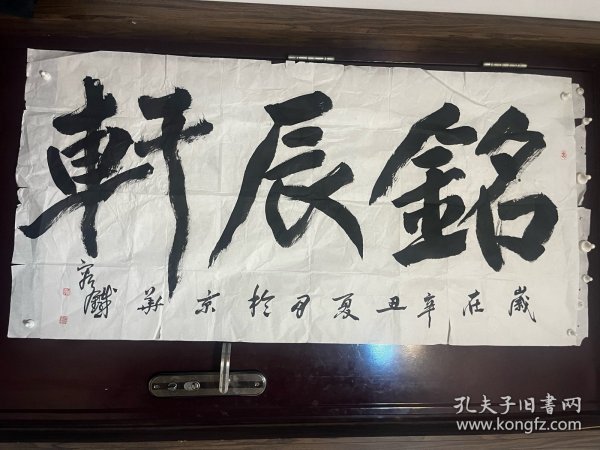 銘辰軒
歲在辛丑夏月於京華
鐵
孔夫子旧書网
www.kongfz.com